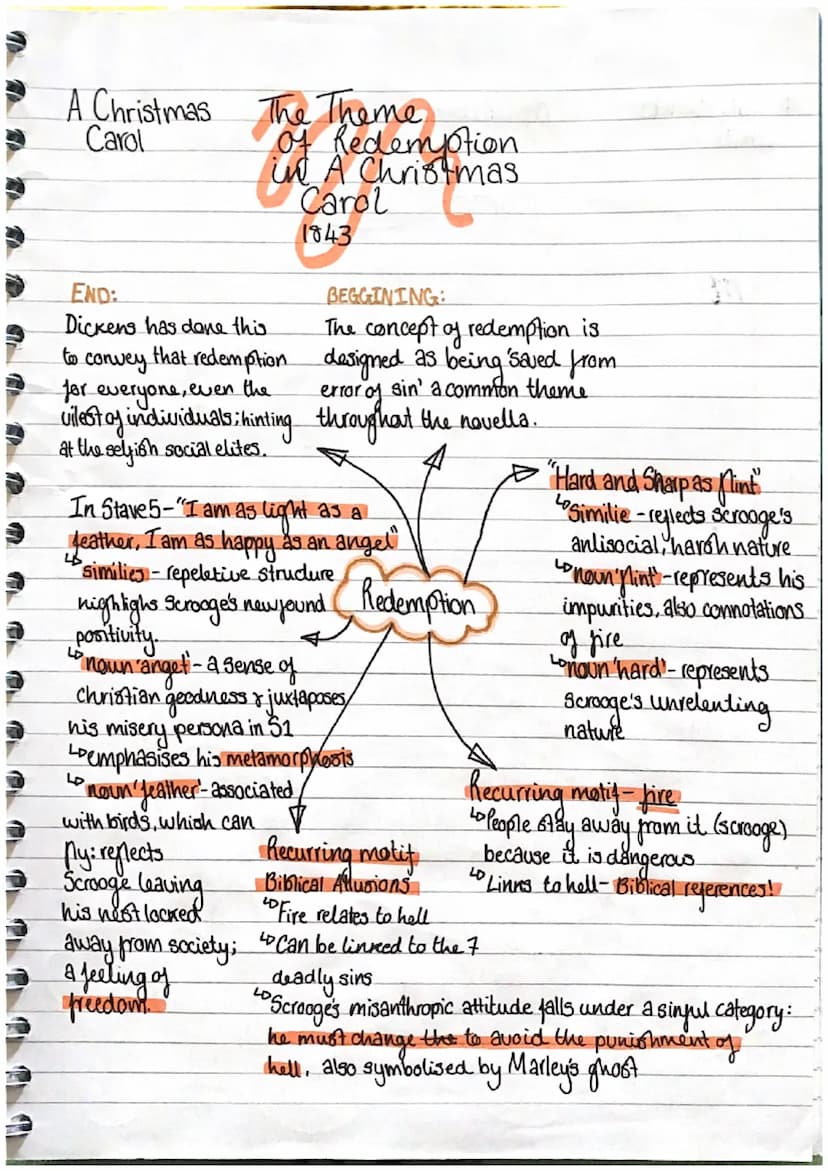 A Christmas
Carol
The Theme
of Redemption
in A Christmas
Carol
1843
END:
Dickens has done this
to convey that redemption
for everyone, even the
vilest of individuals; hinting
at the selfish social elites.
BEGGINING:
The concept of redemption is
designed as being 'saved from
error of sin' a common theme
throughout the novella.
"Hard and Sharp as flint"
↳Similie - reflects scrooge's
antisocial, harsh nature
↳noun 'flint' - represents his
impurities, also connotations
of fire
↳noun 'hard' - represents
Scrooge's unrelenting
nature
In Stave 5 - "I am as light as a
feather, I am as happy as an angel"
↳similies - repetetive structure
highlighs Scrooge's newfound
positivity.
↳noun 'angel' - a sense of
Christian goodness & juxtaposes
his misery persona in S1
↳emphasises his metamorphosis
↳noun 'feather' - associated
with birds, which can
fly: reflects
Scrooge leaving
his nest locked
away from society;
a feeling of
freedom.
Redemption
Recurring motif - fire
↳People stay away from it (scrooge)
because it is dangerous
↳Links to hell - Biblical references!
Recurring motif
Biblical Allusions
↳Fire relates to hell
↳Can be linked to the 7
deadly sins
↳Scrooge's misanthropic attitude falls under a sinful category:
he must change the to avoid the punishment of
hell. also symbolised by Marley's ghost